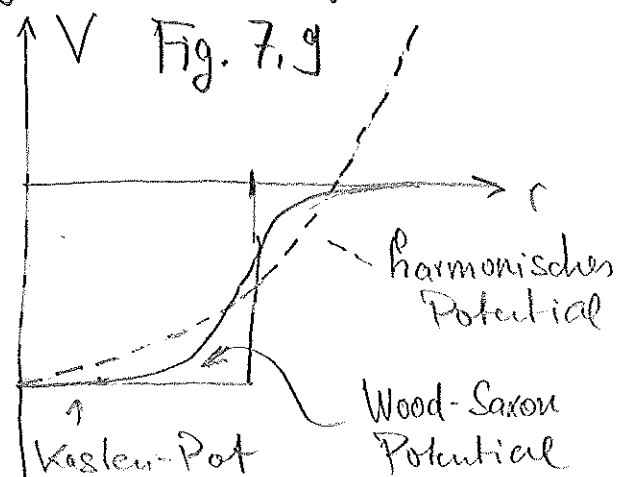 V
Fig. 7,9
r
harmonisches
Potential
Wood-Saxon
Potential
Kasten-Pot